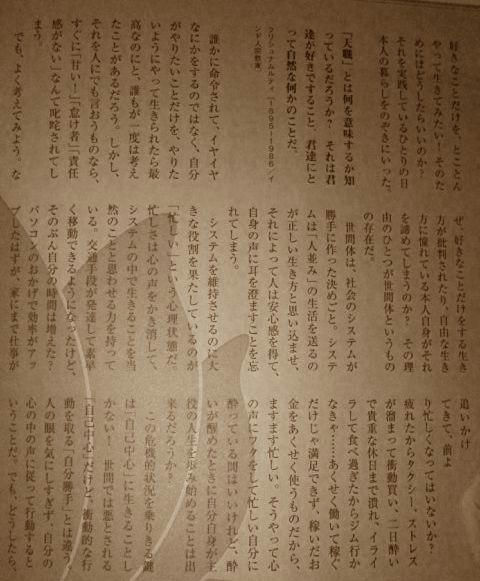 好きなことだけを、とことん
やって生きてみたい！ そのた
めにはどうしたらいいのか？
それを実践しているひとりの日
本人の暮らしをのぞきにいった。
「天職」とは何を意味するか知
っているだろうか？ それは君
達が好きですること、君達にと
って自然な何かのことだ。
クリシュナムルティ（1895-1986／イ
ンド人宗教家）
誰かに命令されて、イヤイヤ
なにかをするのではなく、自分
がやりたいことだけを、やりた
いようにやって生きられたら最
高なのにと、誰もが一度は考え
たことがあるだろう。しかし、
それを人にでも言おうものなら、
すぐに「甘い！」「怠け者！」「責任
感がない」なんて叱咤されてし
まう。
でも、よく考えてみよう。な
ぜ、好きなことだけをする生き
方が批判されたり、自由な生き
方に憧れている本人自身がそれ
を諦めてしまうのか？ その理
由のひとつが世間体というもの
の存在だ。
世間体は、社会のシステムが
勝手に作った決めごと。システ
ムは「人並み」の生活を送るの
が正しい生き方と思い込ませ、
それによって人は安心感を得て、
自身の声に耳を澄ますことを忘
れてしまう。
システムを維持させるのに大
きな役割を果たしているのが
「忙しい」という心理状態だ。
忙しさは心の声をかき消して、
システムの中で生きることを当
然のことと思わせる力を持って
いる。交通手段が発達して素早
く移動できるようになったけど、
そのぶん自分の時間は増えた？
パソコンのおかげで効率がアッ
プしたはずが、家にまで仕事が
追いかけ
てきて、前よ
り忙しくなってはいないか？
疲れたからタクシー、ストレス
が溜まって衝動買い、二日酔い
で貴重な休日まで潰れ、イライ
ラして食べ過ぎたからジム行か
なきゃ……あくせく働いて稼ぐ
だけじゃ満足できず、稼いだお
金をあくせく使うものだから、
ますます忙しい。そうやって心
の声にフタをして忙しい自分に
酔っている間はいいけれど、酔
いが醒めたときに自分自身が主
役の人生を歩み始めることは出
来るだろうか？
この危機的状況を乗りきる鍵
は「自己中心」に生きることし
かない！ 世間では悪とされる
「自己中心」だけど、衝動的な行
動を取る「自分勝手」とは違う
人の眼を気にしすぎず、自分の
心の中の声に従って行動すると
いうことだ。でも、どうしたら、